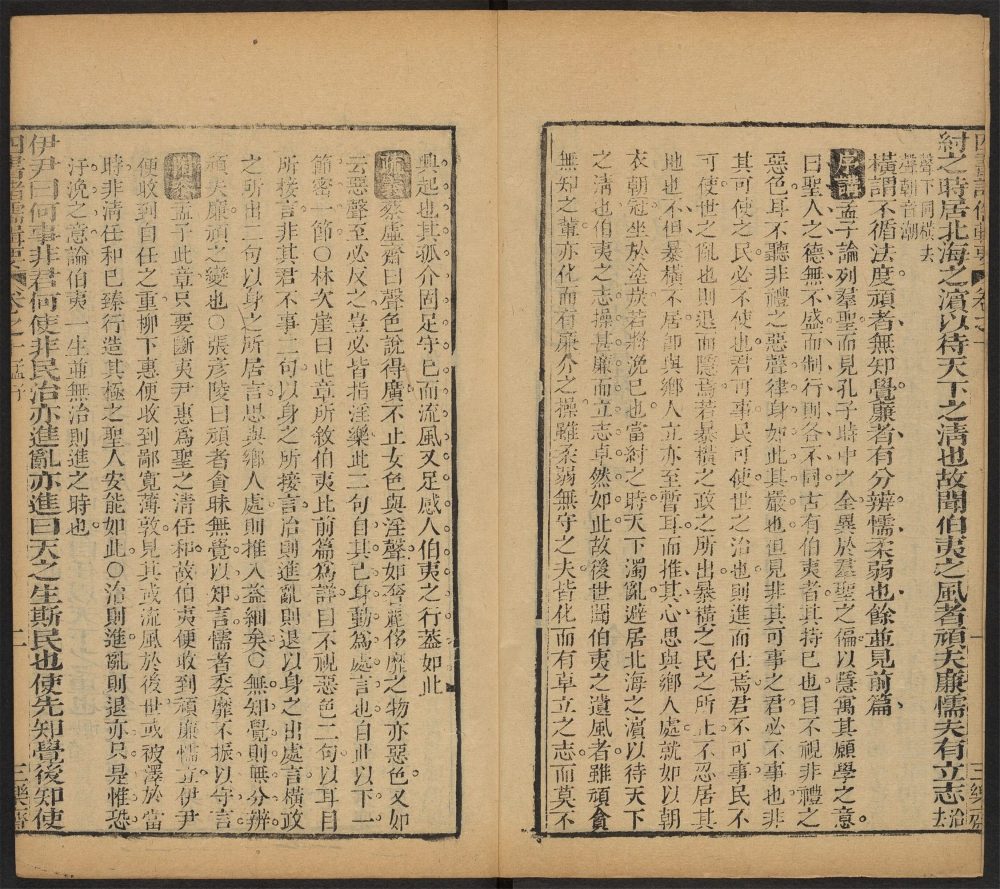 紂之時居北海之濱以待天下之清也故聞伯夷之風者頑夫廉懦夫有立志治去
聲下同橫去
聲朝音潮
橫謂不循法度頑者無知覺廉者有分辨懦柔弱也餘並見前篇
序講孟子論列羣聖而見孔子時中之全異於羣聖之偏以隱寓其願學之意
曰聖人之德無不盛而制行則各不同古有伯夷者其持已也目不視非禮之
惡色耳不聽非禮之惡聲律身如此其嚴也但見非其可事之君必不事也非
其可使之民必不使也君可事民可使世之治也則進而仕焉君不可事民不
可使世之亂也則退而隱焉若暴橫之政之所出暴橫之民之所止不忍居其
地也不但暴橫不居卽與鄉人立亦至暫耳而推其心思與鄉人處就如以朝
衣朝冠坐於塗炭若將浼已也當紂之時天下濁亂避居北海之濱以待天下
之淸也伯夷之志操甚廉而立志卓然如此故後世聞伯夷之遺風者雖頑貪
無知之輩亦化而有廉介之操雖柔弱無守之夫皆化而有卓立之志而莫不
興起也其孤介固足守已而流風又足感人伯夷之行蓋如此
蔡虛齋曰聲色說得廣不止女色與淫聲如奇麗侈靡之物亦惡色又如
云惡聲至必反之豈必皆指淫樂此二句自其已身動為處言也自此以下一
節密一節○林次崖曰此章所敘伯夷比前篇為詳目不視惡色二句以耳目
所接言非其君不事二句以身之所接言治則進亂則退以身之出處言橫政
之所出二句以身之所居言思與鄉人處則推入益細矣○無知覺則無分辨
頑夫廉頑之變也○張彥陵曰頑者貪昧無覺以知言懦者委靡不振以守言
孟子此章只要斷夷尹惠為聖之清任和故伯夷便收到頑廉懦立伊尹
便收到自任之重柳下惠便收到鄙寬薄敦見其或流風於後世或被澤於當
時非清任和已臻行造其極之聖人安能如此○治則進亂則退亦只是惟恐
汙浼之意論伯夷一生並無治則進之時也
伊尹曰何事非君何使非民治亦進亂亦進曰天之生斯民也使先知覺後知使